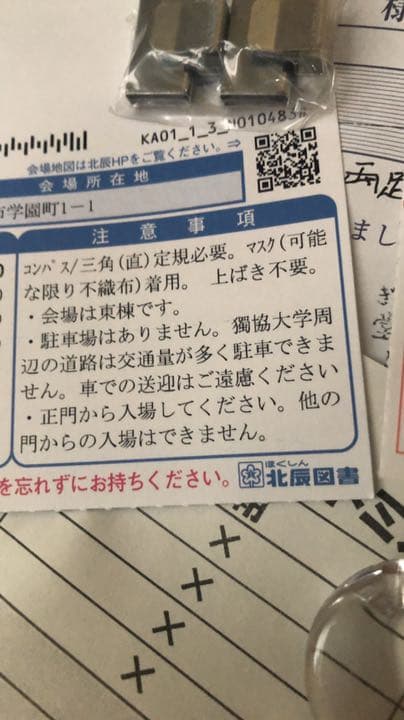 様
KA01_1_3_
会場地図は北辰HPをご覧ください。⇒
会場所在地
学園町1－1
注意事項
コンパス/三角(直)定規必要。マスク(可能
な限り不織布)着用。 上ばき不要。
・会場は東棟です。
・駐車場はありません。獨協大学周
辺の道路は交通量が多く駐車できま
せん。車での送迎はご遠慮ください
・正門から入場してください。他の
門からの入場はできません。
を忘れずにお持ちください。
ほくしん
北辰図書
まし